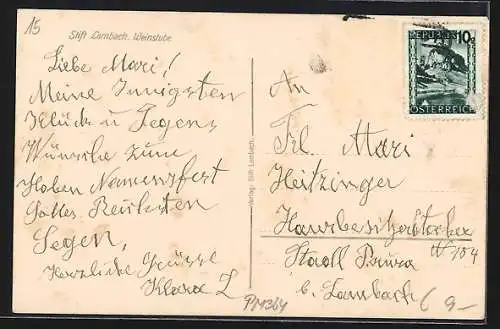 15
Stift Lambach. Weinstube
Liebe Mari!
Meine Innigsten
Glück u Segens
Wünsche zum
Hohen Namensfest
Gottes Reichsten
Segen,
Herzliche Grüsse
Klara L
PM364
Verlag: Stift Lambach.
REPUBLIK 10g
ÖSTERREICH
An
Frl. Mari
Heitzinger
Hausbesitzerstochter
N 104
Stadl Paura
b. Lambach
9-